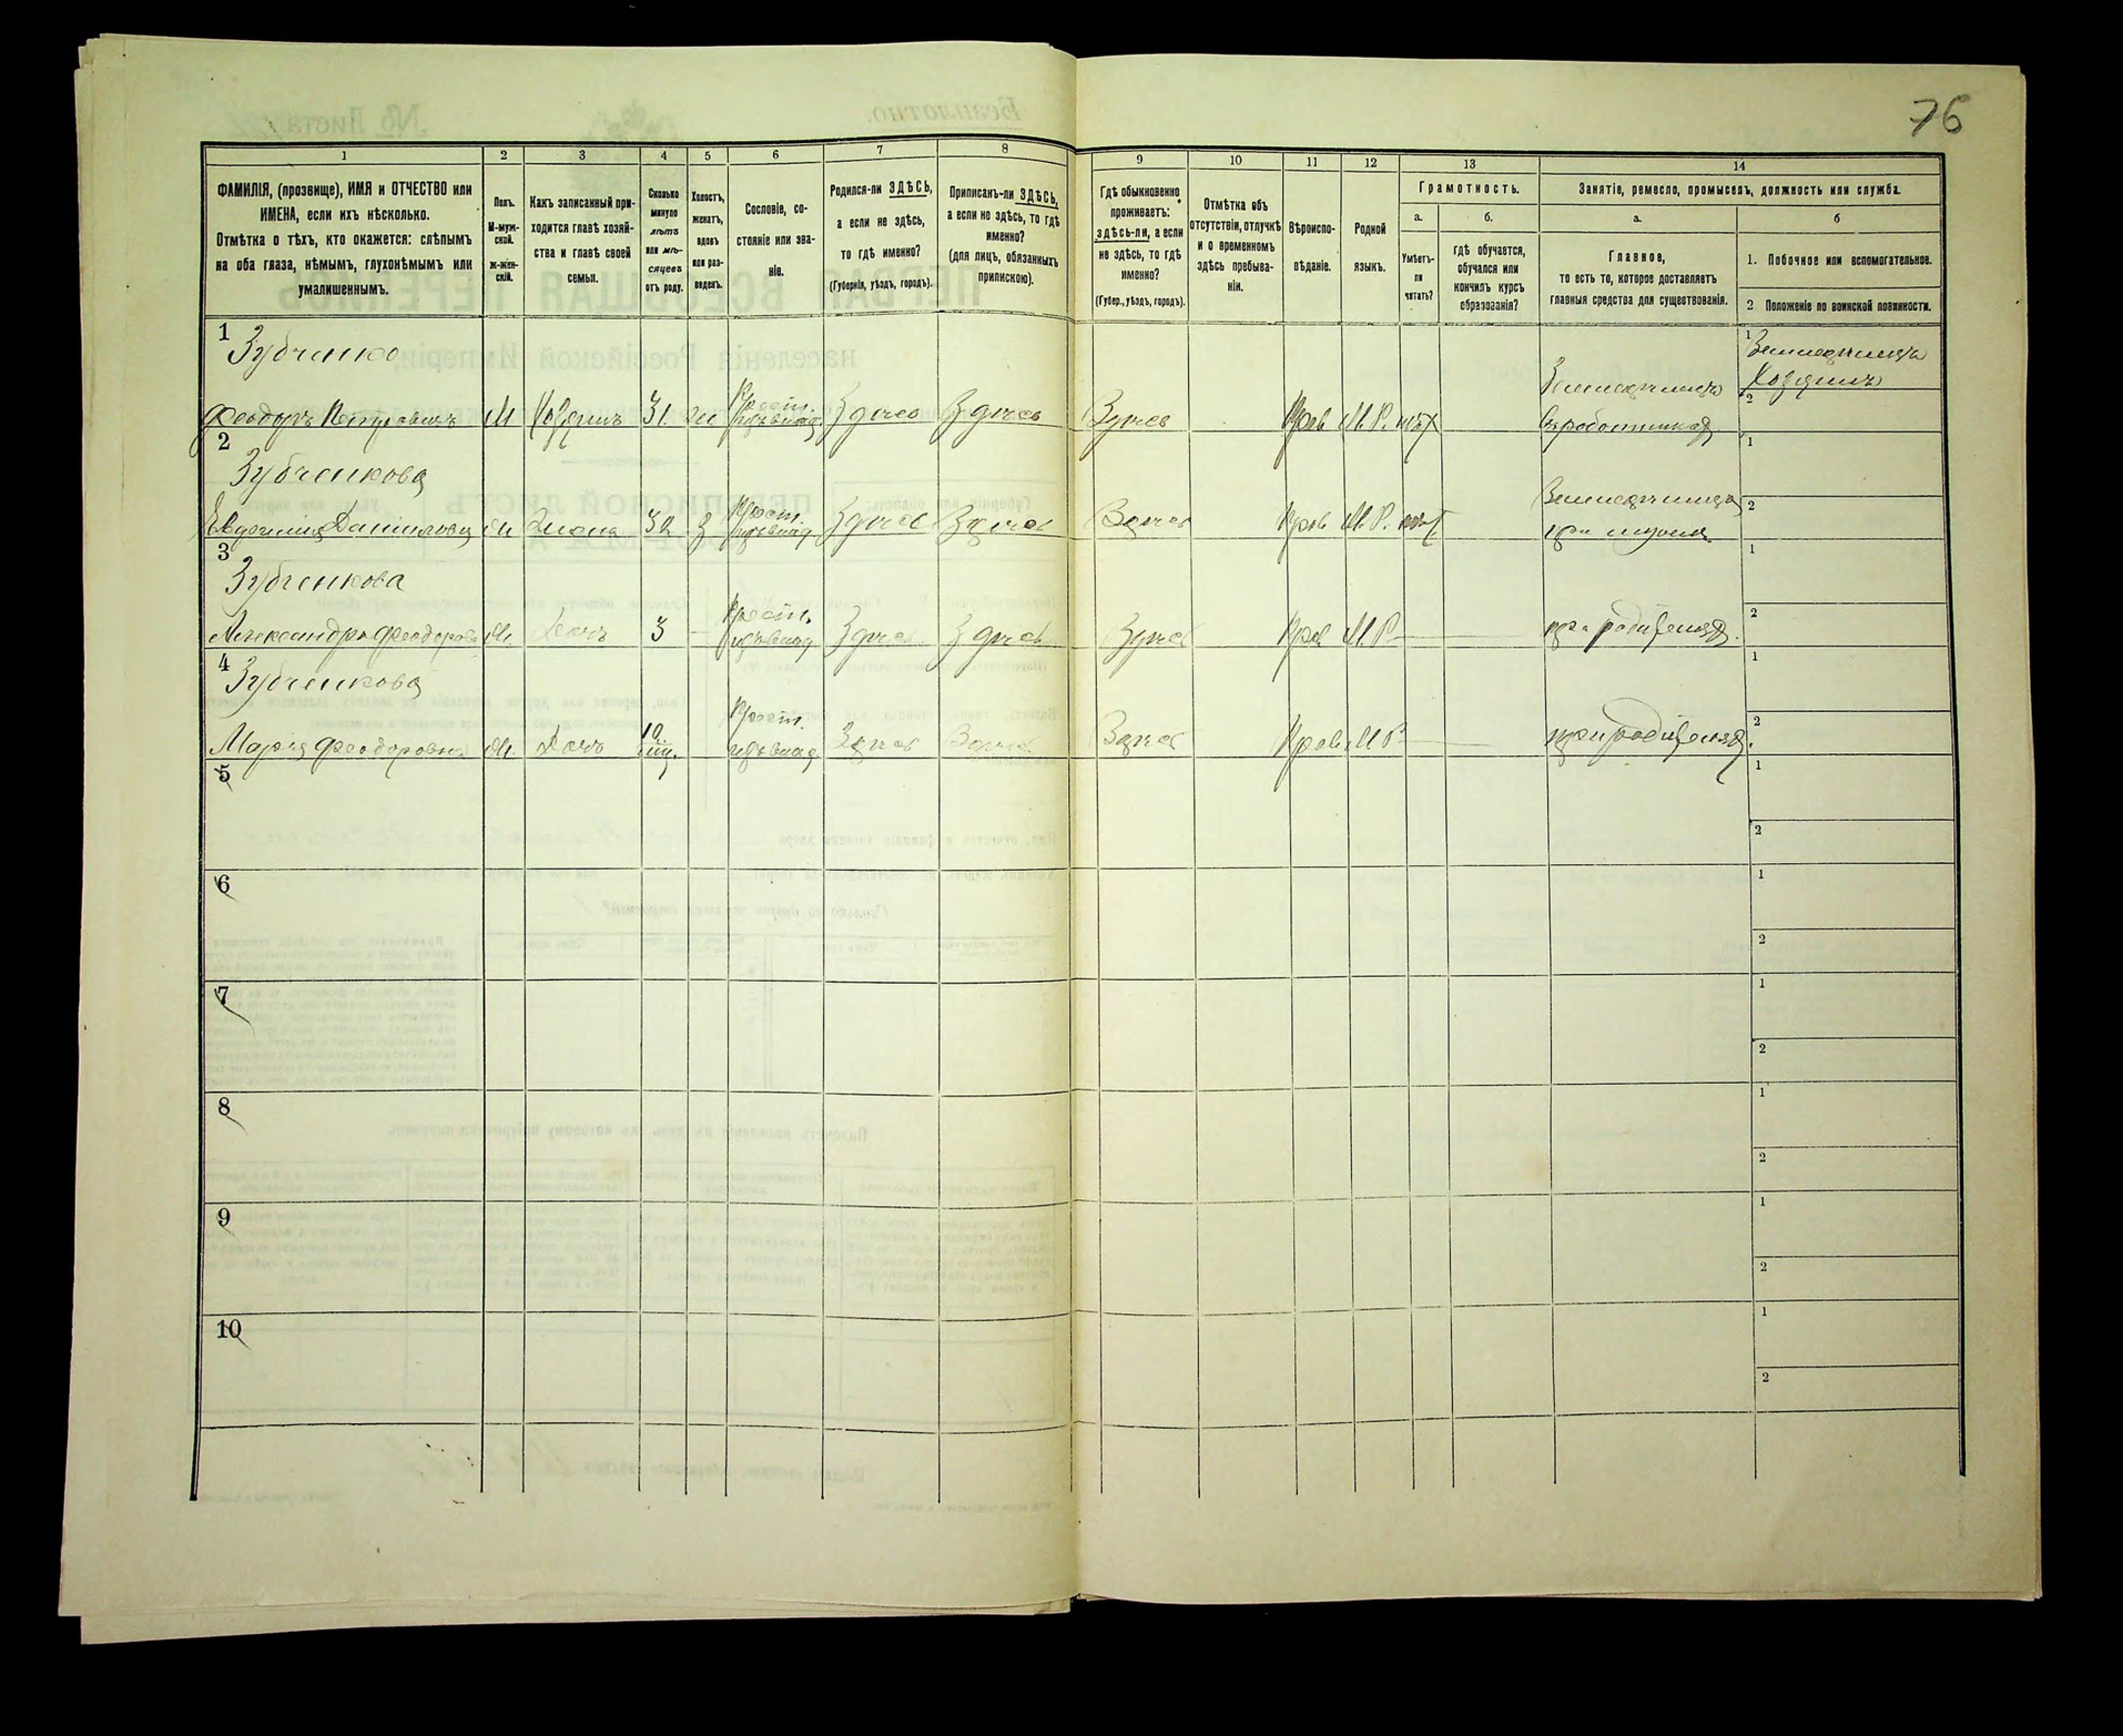 76
1 2 3 4 5 6 7 8 9 10 11 12 13 14
ФАМИЛІЯ, (прозвище), ИМЯ и ОТЧЕСТВО или
ИМЕНА, если ихъ нѣсколько.
Отмѣтка о тѣхъ, кто окажется: слѣпымъ
на оба глаза, нѣмымъ, глухонѣмымъ или
умалишеннымъ.
Полъ.
М-муж-
ской.
ж-жен-
скій.
Какъ записанный при-
ходится главѣ хозяй-
ства и главѣ своей
семьи.
Сколько
минуло
лѣтъ
или мѣ-
сяцевъ
отъ роду.
Холостъ,
женатъ,
вдовъ
или раз-
веденъ.
Сословіе, со-
стояніе или зва-
ніе.
Родился-ли ЗДѢСЬ,
а если не здѣсь,
то гдѣ именно?
(Губернія, уѣздъ, городъ).
Приписанъ-ли ЗДѢСЬ,
а если не здѣсь, то гдѣ
именно?
(для лицъ, обязанныхъ
припискою).
Гдѣ обыкновенно
проживаетъ:
здѣсь-ли, а если
не здѣсь, то гдѣ
именно?
(Губер., уѣздъ, городъ).
Отмѣтка объ
отсутствіи, отлучкѣ
и о временномъ
здѣсь пребыва-
ніи.
Вѣроиспо-
вѣданіе.
Родной
языкъ.
Грамотность.
а.
Умѣетъ-
ли
читать?
б.
гдѣ обучается,
обучался или
кончилъ курсъ
образованія?
Занятіе, ремесло, промыселъ, должность или служба.
а.
Главное,
то есть то, которое доставляетъ
главныя средства для существованія.
б
1. Побочное или вспомогательное.
2 Положеніе по воинской повинности.
1
Зубченко
Феодоръ Петровичъ М Хозяинъ 31 ж Крест. Здесь Здесь Здесь Прав М.Р. нѣт
Хозяинъ
1
2
2
Зубченкова
Евдокия Даниловна Ж Жена 32 З Крест. Здесь Здесь Здесь Прав М.Р. нѣт
при мужѣ
1
2
3
Зубченкова
Александра Феодоровна Ж Дочь 3 Крест. Здесь Здесь Здесь Прав М.Р.
при родителях.
1
2
4
Зубченкова
Мария Феодоровна Ж. Дочь 10 Крест. Здесь Здесь Здесь Прав М.Р.
при родителях.
1
2
5
1
2
6
1
2
7
1
2
8
1
2
9
1
2
10
1
2